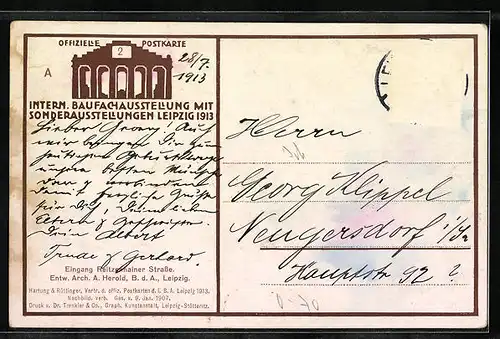 OFFIZIELLE POSTKARTE
2
A
28/7.
1913
INTERN. BAUFACHAUSSTELLUNG MIT
SONDERAUSSTELLUNGEN LEIPZIG 1913
Lieber Georg! Auch
wir bringen Dir zum
heutigen Geburtstage
unsere besten Wünsche
dar
Dein Albert
Trude & Gerhard
Herrn
Georg Klippel
Neugersdorf i/Sa
Hauptstr 92 ?
Eingang Reitzenhainer Straße.
Entw. Arch. A. Herold, B. d. A., Leipzig.
Hartung & Röttinger, Vertr. d. offiz. Postkarten d. I. B. A. Leipzig 1913.
Nachbild. verb. Ges. v. 9. Jan. 1907.
Druck v. Dr. Trenkler & Co., Graph. Kunstanstalt, Leipzig-Stötteritz.